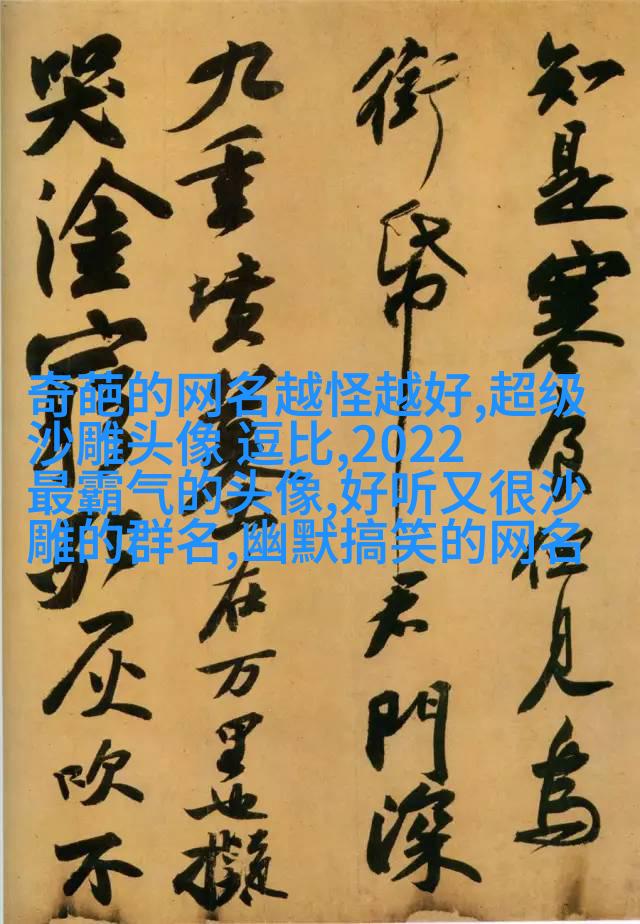 知是寒食但見烏
銜帋君門深
九重墳墓在万里也擬
哭塗窮死灰吹不
奇葩的网名越怪越好,超级
沙雕头像 逗比,2022
最霸气的头像,好听又很沙
雕的群名,幽默搞笑的网名